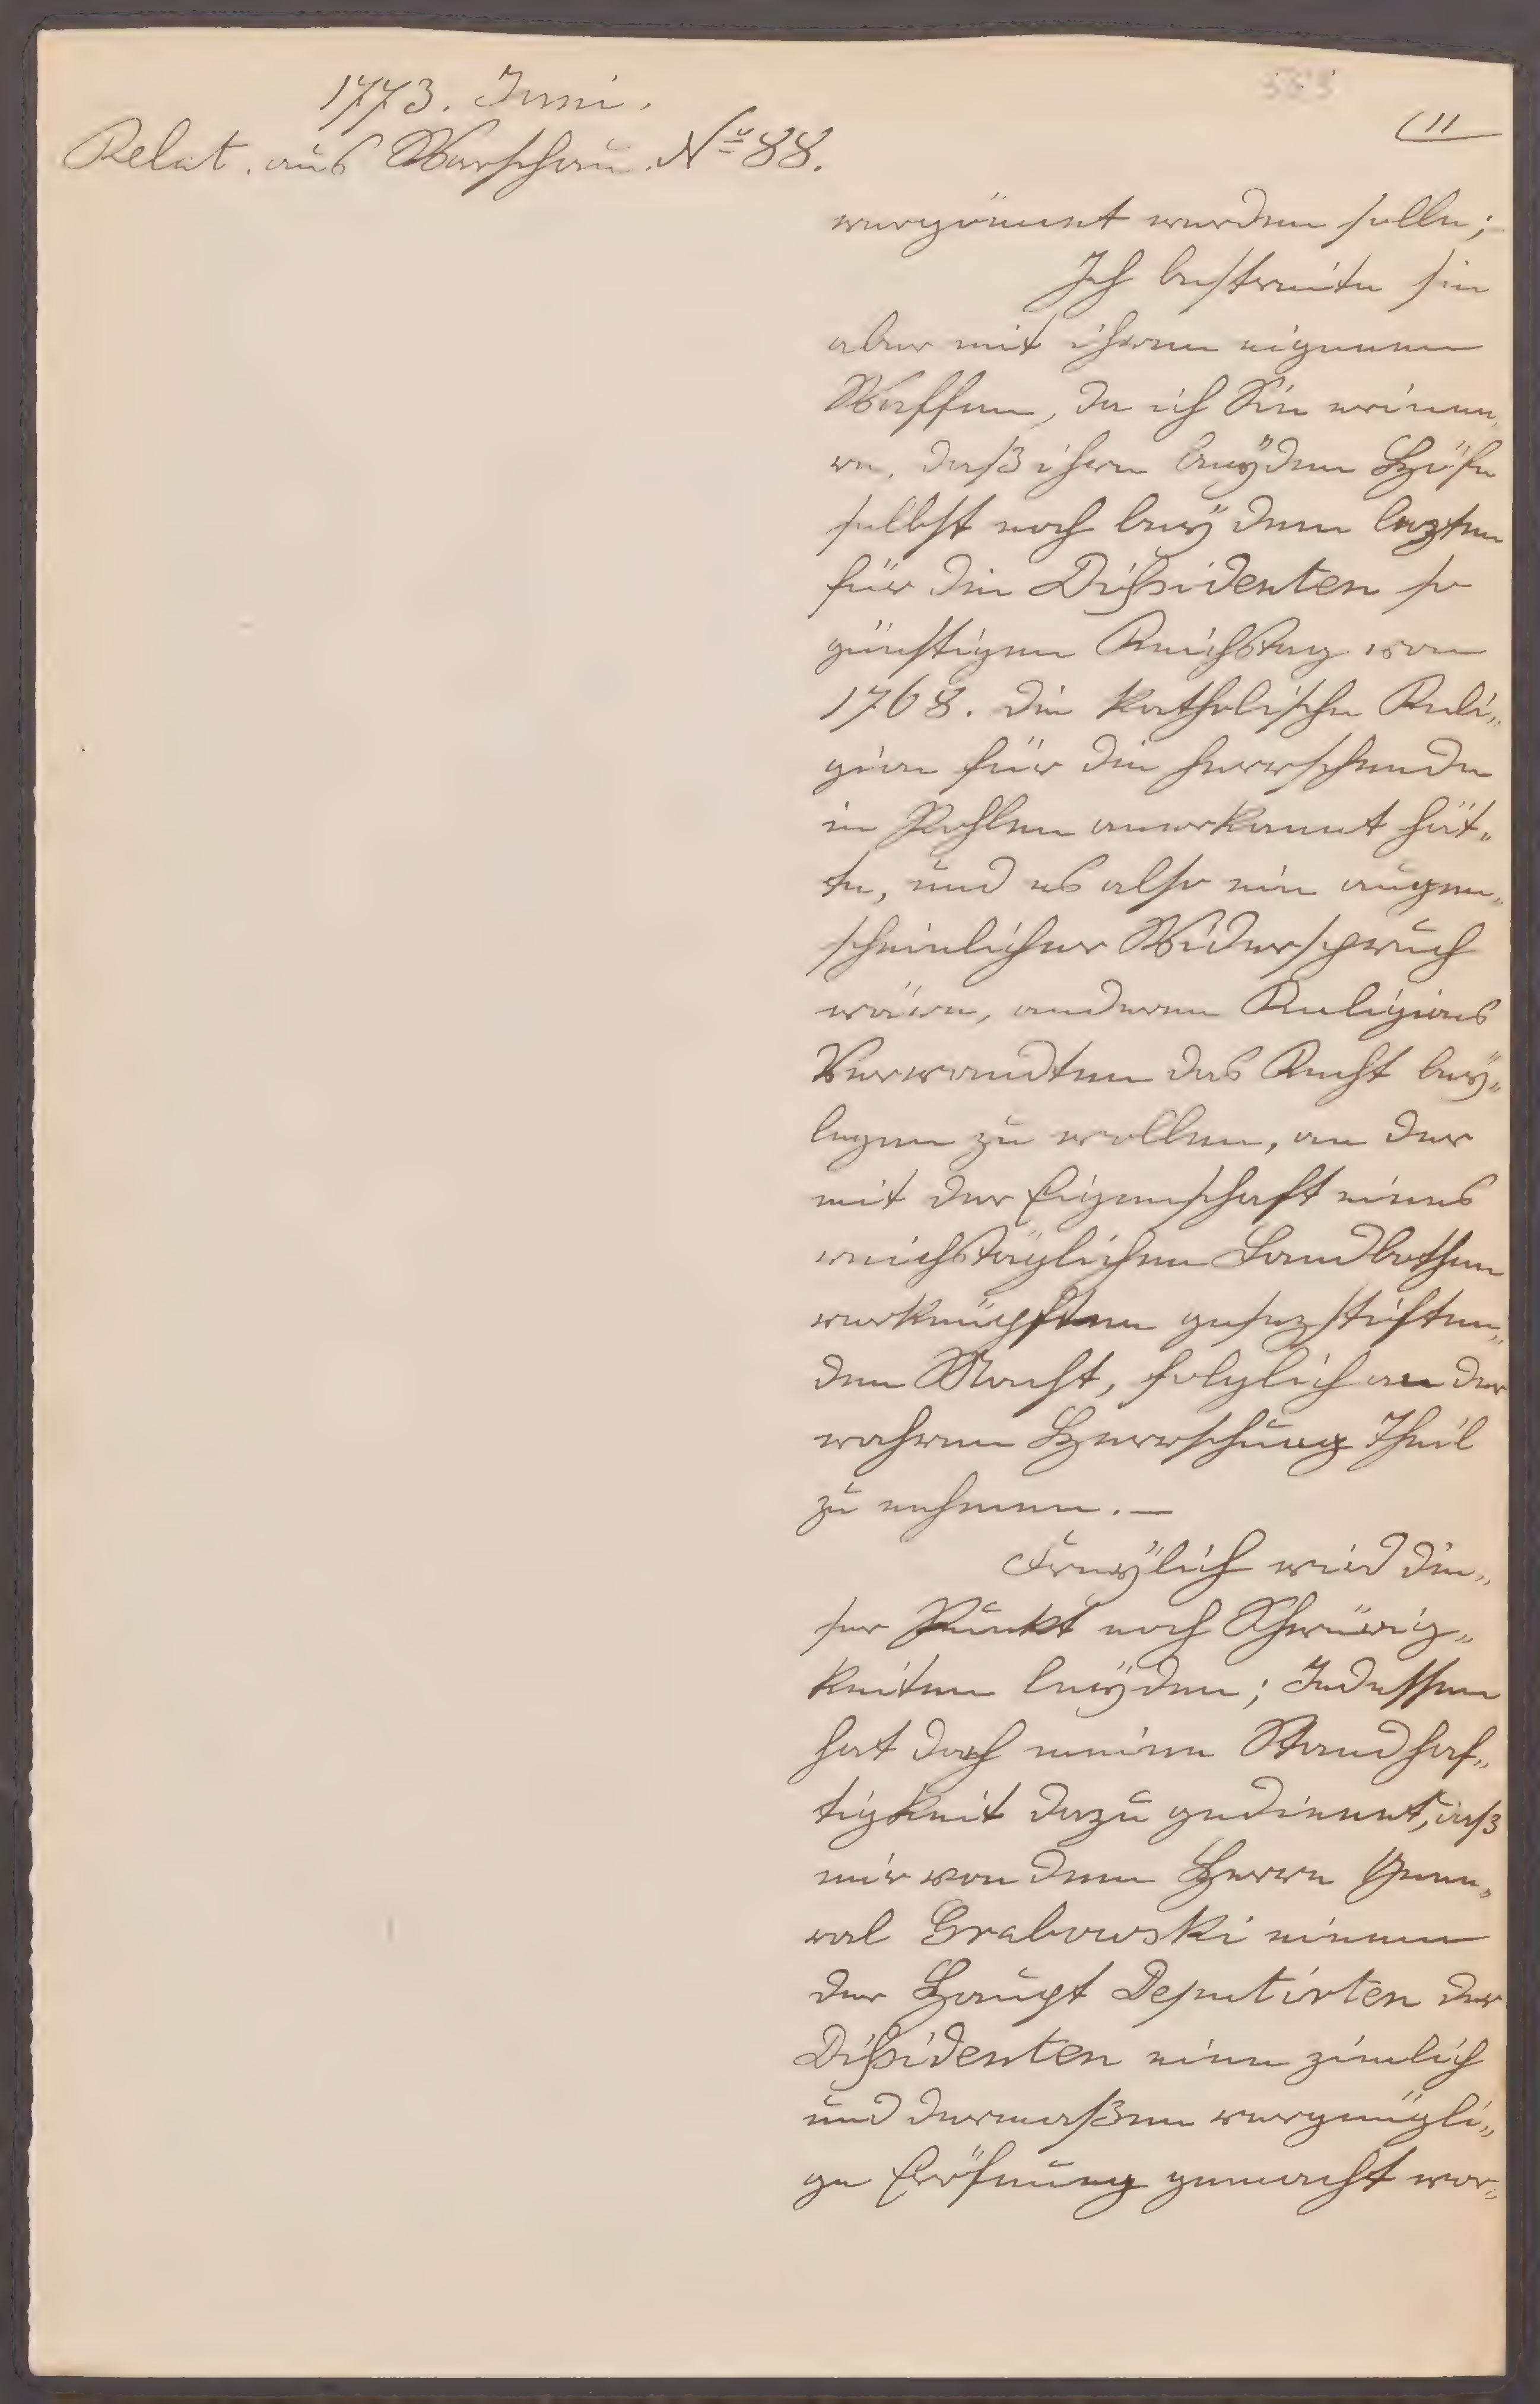 1773. Juni.
Relat. aus Warschau. No 88.
11
vergönnet werden solle;
Ich bestreite sie
aber mit ihren eigenen
Waffen, da ich Sie erinne„
re, daß ihre beÿden Höfe
selbst noch beÿ dem lezten
für die Dißidenten so
günstigen Reichstag von
1768. die katholische Reli„
gion für die herrschende
in Pohlen anerkannt hät„
te, und es also ein augen„
scheinlicher Widerspruch
wäre, anderen Religions
Verwandten das Recht beÿ„
legen zu wollen, an der
mit der Eigenschaft eines
reichstäglichen Landbothen
verknüpften gesezstiften„
den Macht, folglich an der
wahren Herrschung Theil
zu nehmen. —
Freÿlich wird die„
ser Punkt noch Schwürig„
keiten leÿden; Indessen
hat doch meine Standhaf„
tigkeit dazu gedienet, daß
mir von dem Herrn Gene„
ral Grabowski einem
der Haupt Deputirten der
Dißidenten eine zimlich
und dermaßen vergnügli„
ge Eröfnung gemacht wor„